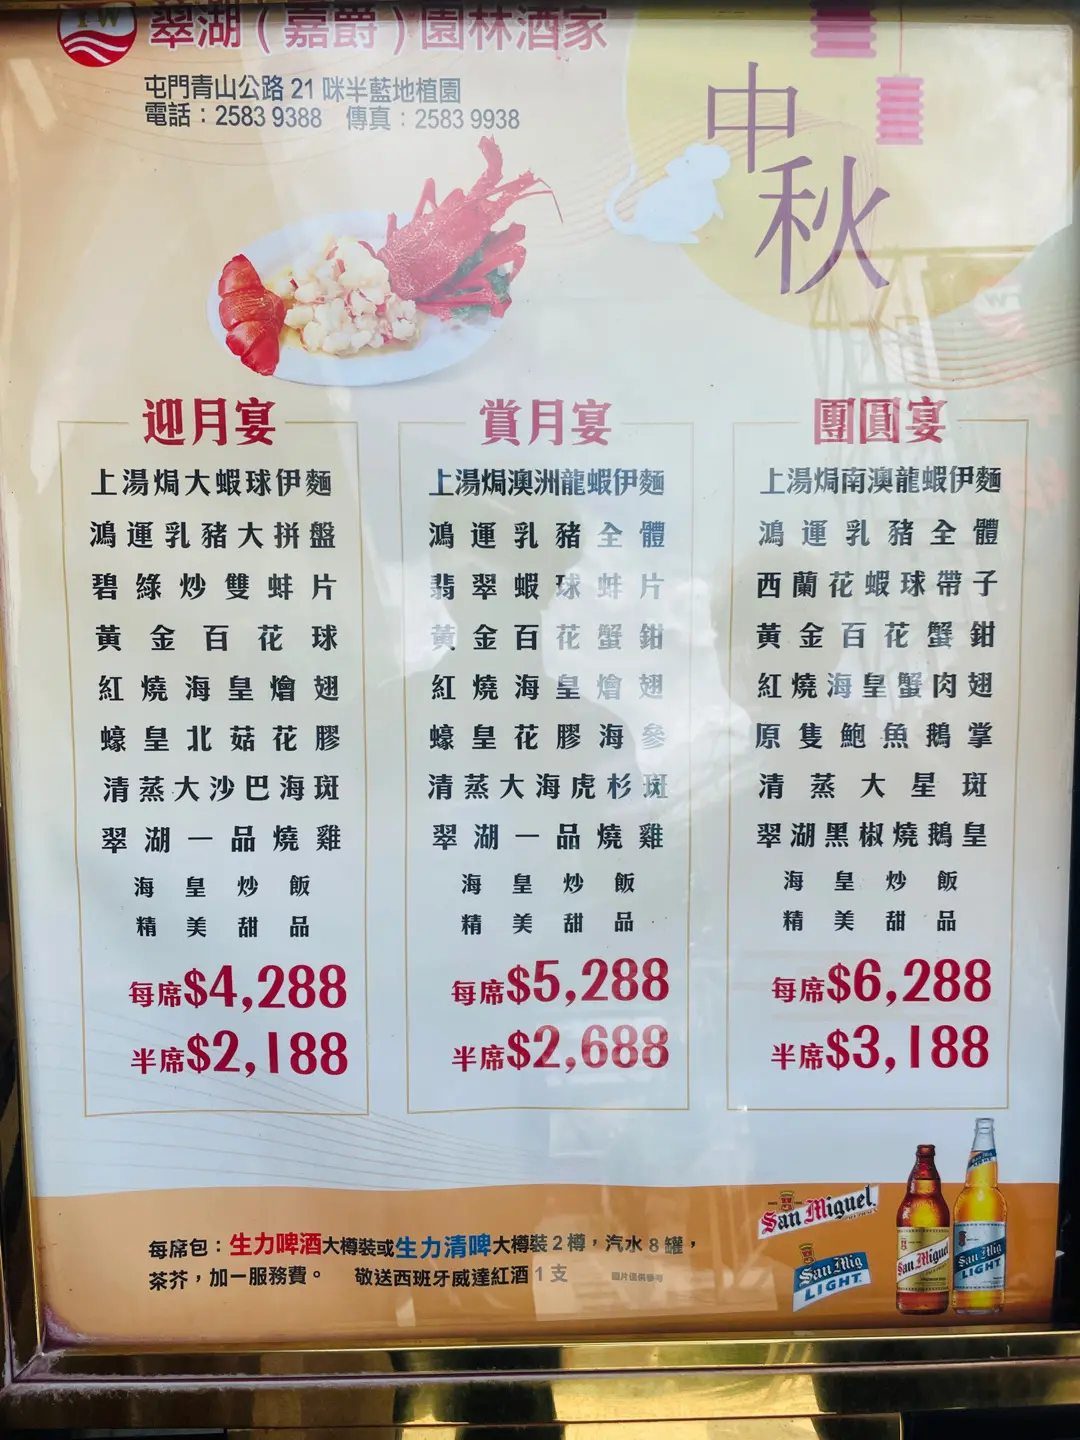 翠湖（嘉爵）園林酒家
屯門青山公路 21 咪半藍地植園
電話：2583 9388 傳真：2583 9938
中秋
迎月宴
上湯焗大蝦球伊麵
鴻運乳豬大拼盤
碧綠炒雙蚌片
黃金百花球
紅燒海皇燴翅
蠔皇北菇花膠
清蒸大沙巴海斑
翠湖一品燒雞
海皇炒飯
精美甜品
每席$4,288
半席$2,188
賞月宴
上湯焗澳洲龍蝦伊麵
鴻運乳豬全體
翡翠蝦球蚌片
黃金百花蟹鉗
紅燒海皇燴翅
蠔皇花膠海參
清蒸大海虎杉斑
翠湖一品燒雞
海皇炒飯
精美甜品
每席$5,288
半席$2,688
團圓宴
上湯焗南澳龍蝦伊麵
鴻運乳豬全體
西蘭花蝦球帶子
黃金百花蟹鉗
紅燒海皇蟹肉翅
原隻鮑魚鵝掌
清蒸大星斑
翠湖黑椒燒鵝皇
海皇炒飯
精美甜品
每席$6,288
半席$3,188
每席包：生力啤酒大樽裝或生力清啤大樽裝 2 樽，汽水 8 罐，
茶芥，加一服務費。 敬送西班牙威達紅酒 1 支 圖片僅供參考
San Miguel
San Mig
LIGHT
San Miguel
San Mig
LIGHT